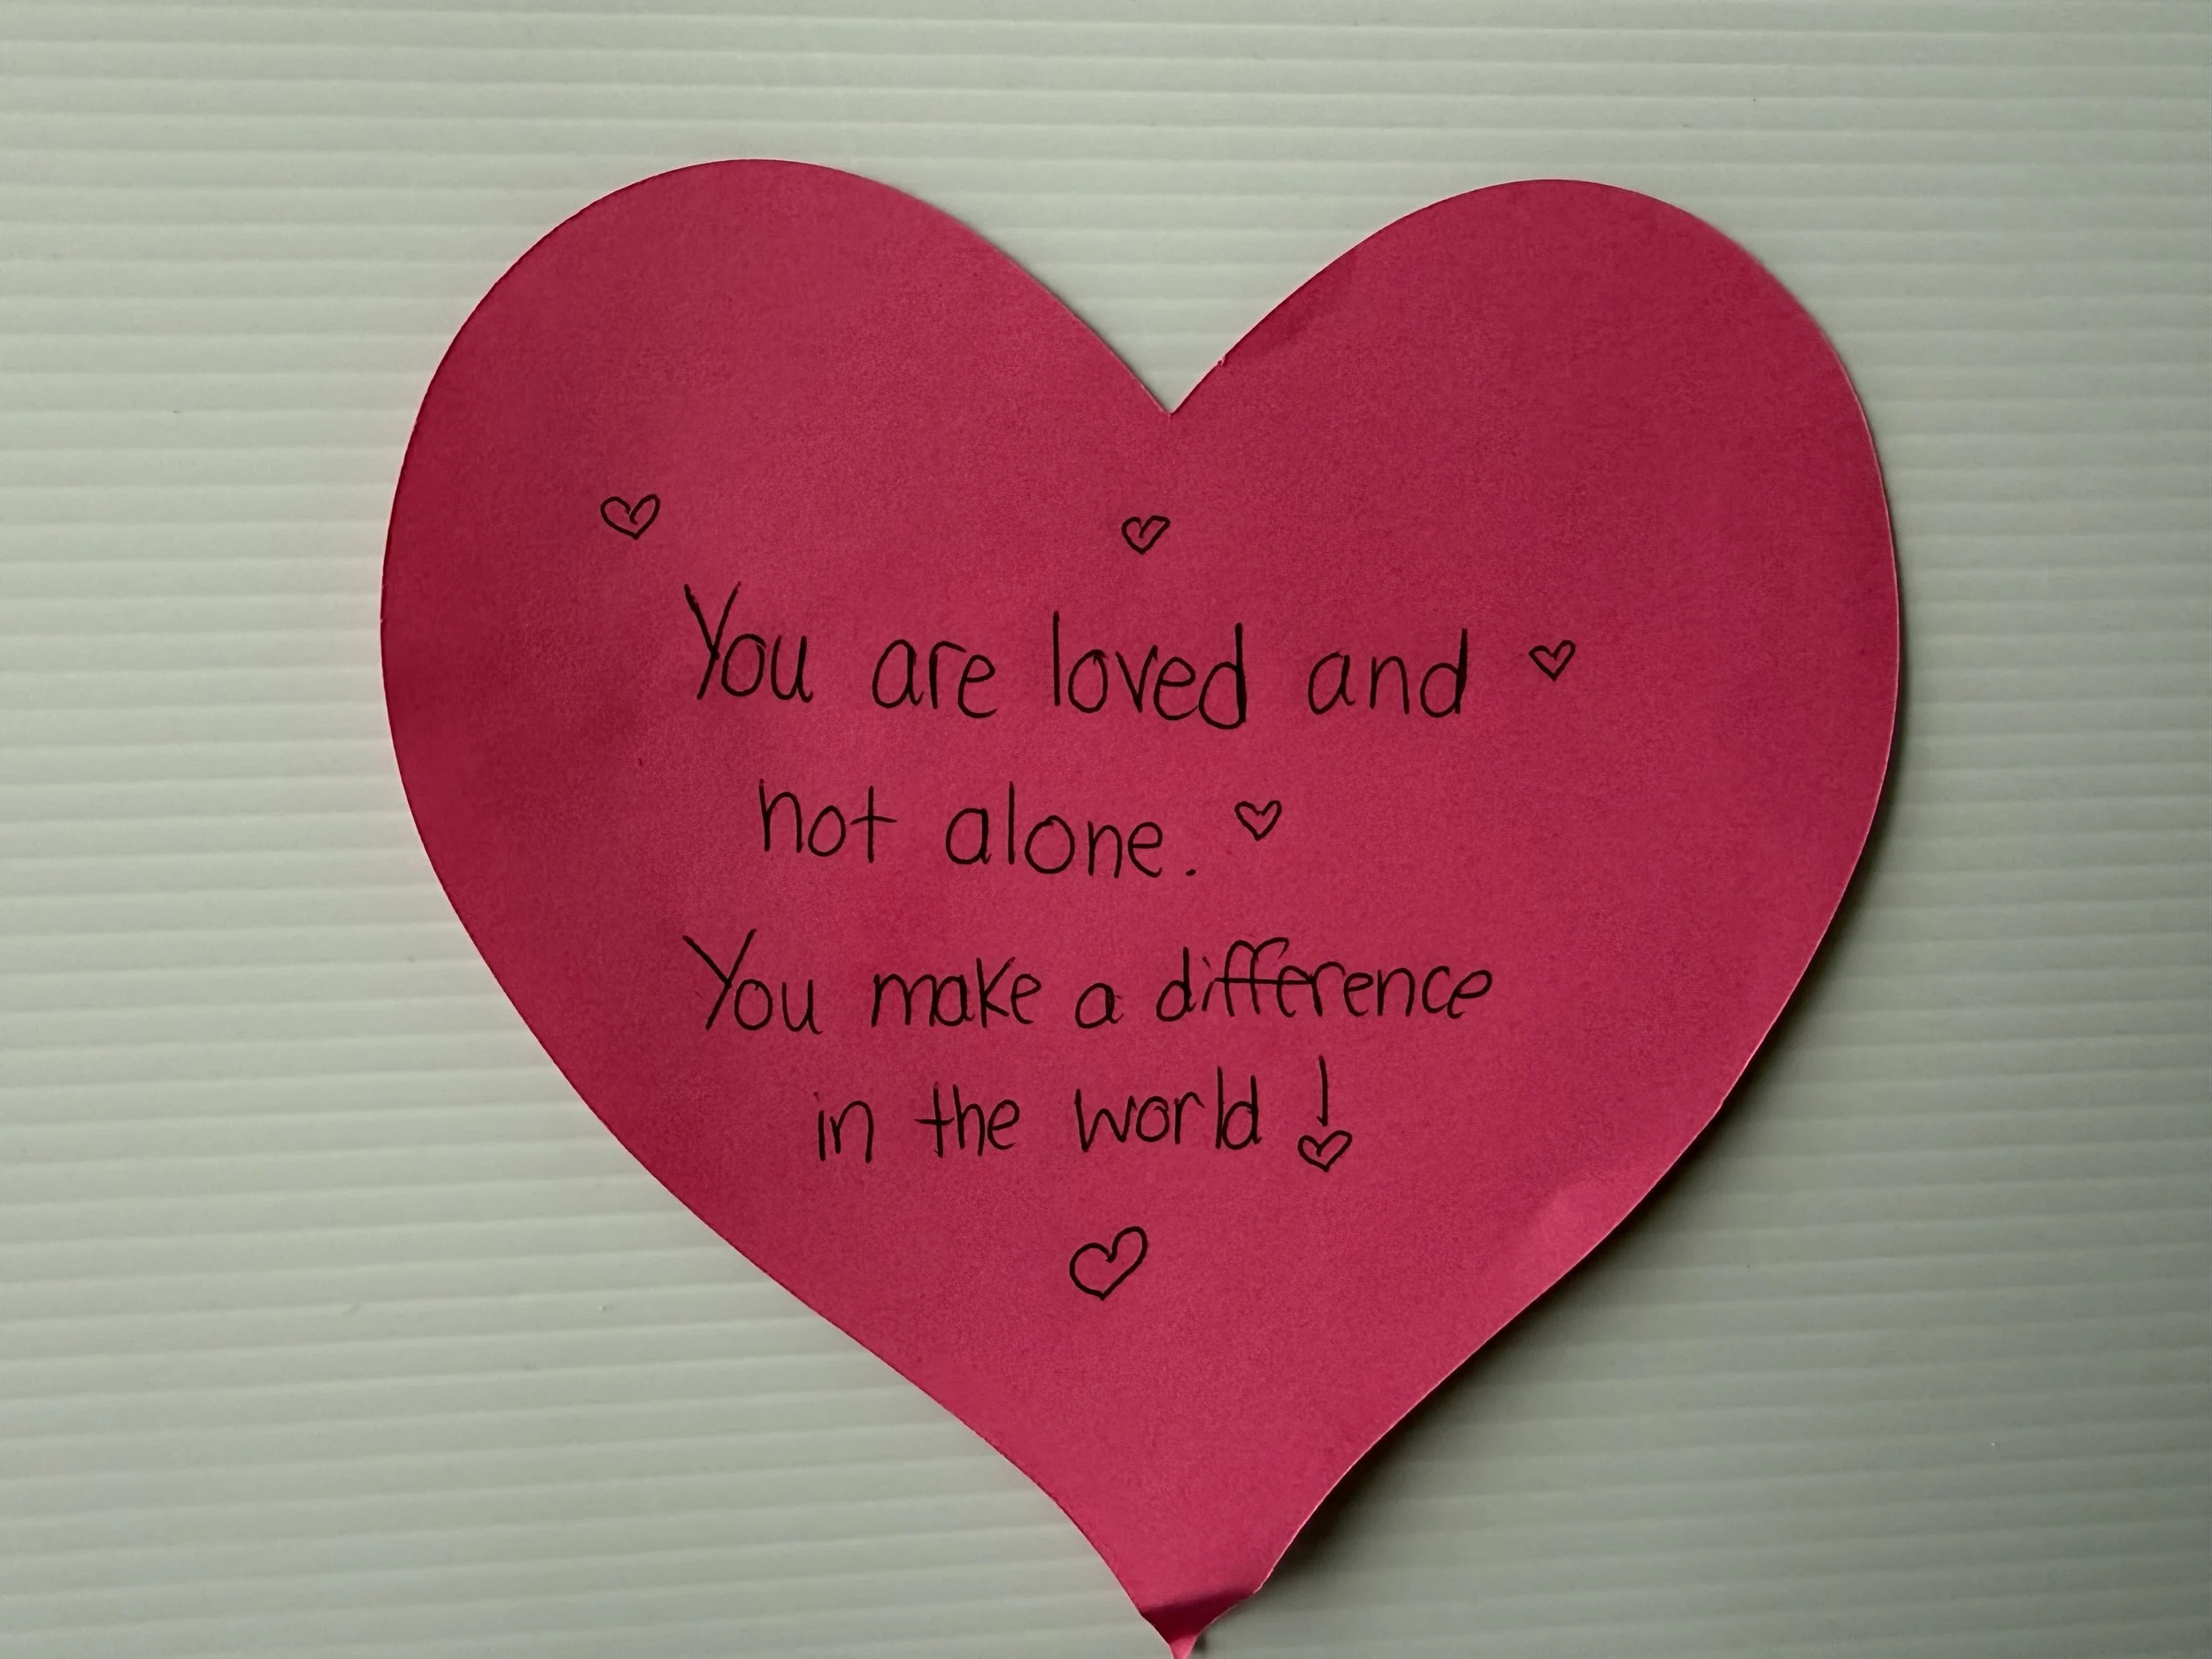 You are loved and
not alone.
You make a difference
in the world!